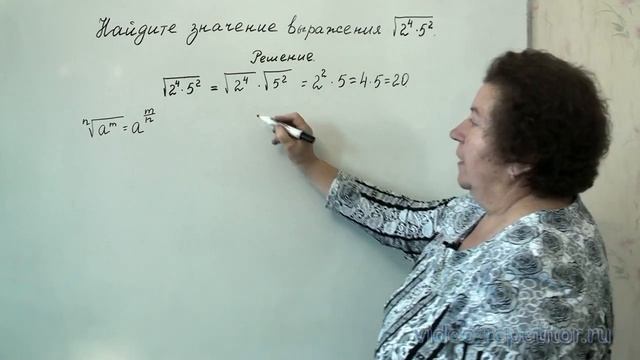 Найдите значение выражения √(2⁴·5²).
Решение.
√(2⁴·5²) = √(2⁴) · √(5²) = 2² · 5 = 4 · 5 = 20
ⁿ√(aᵐ) = a^(m/n)
video-repetitor.ru